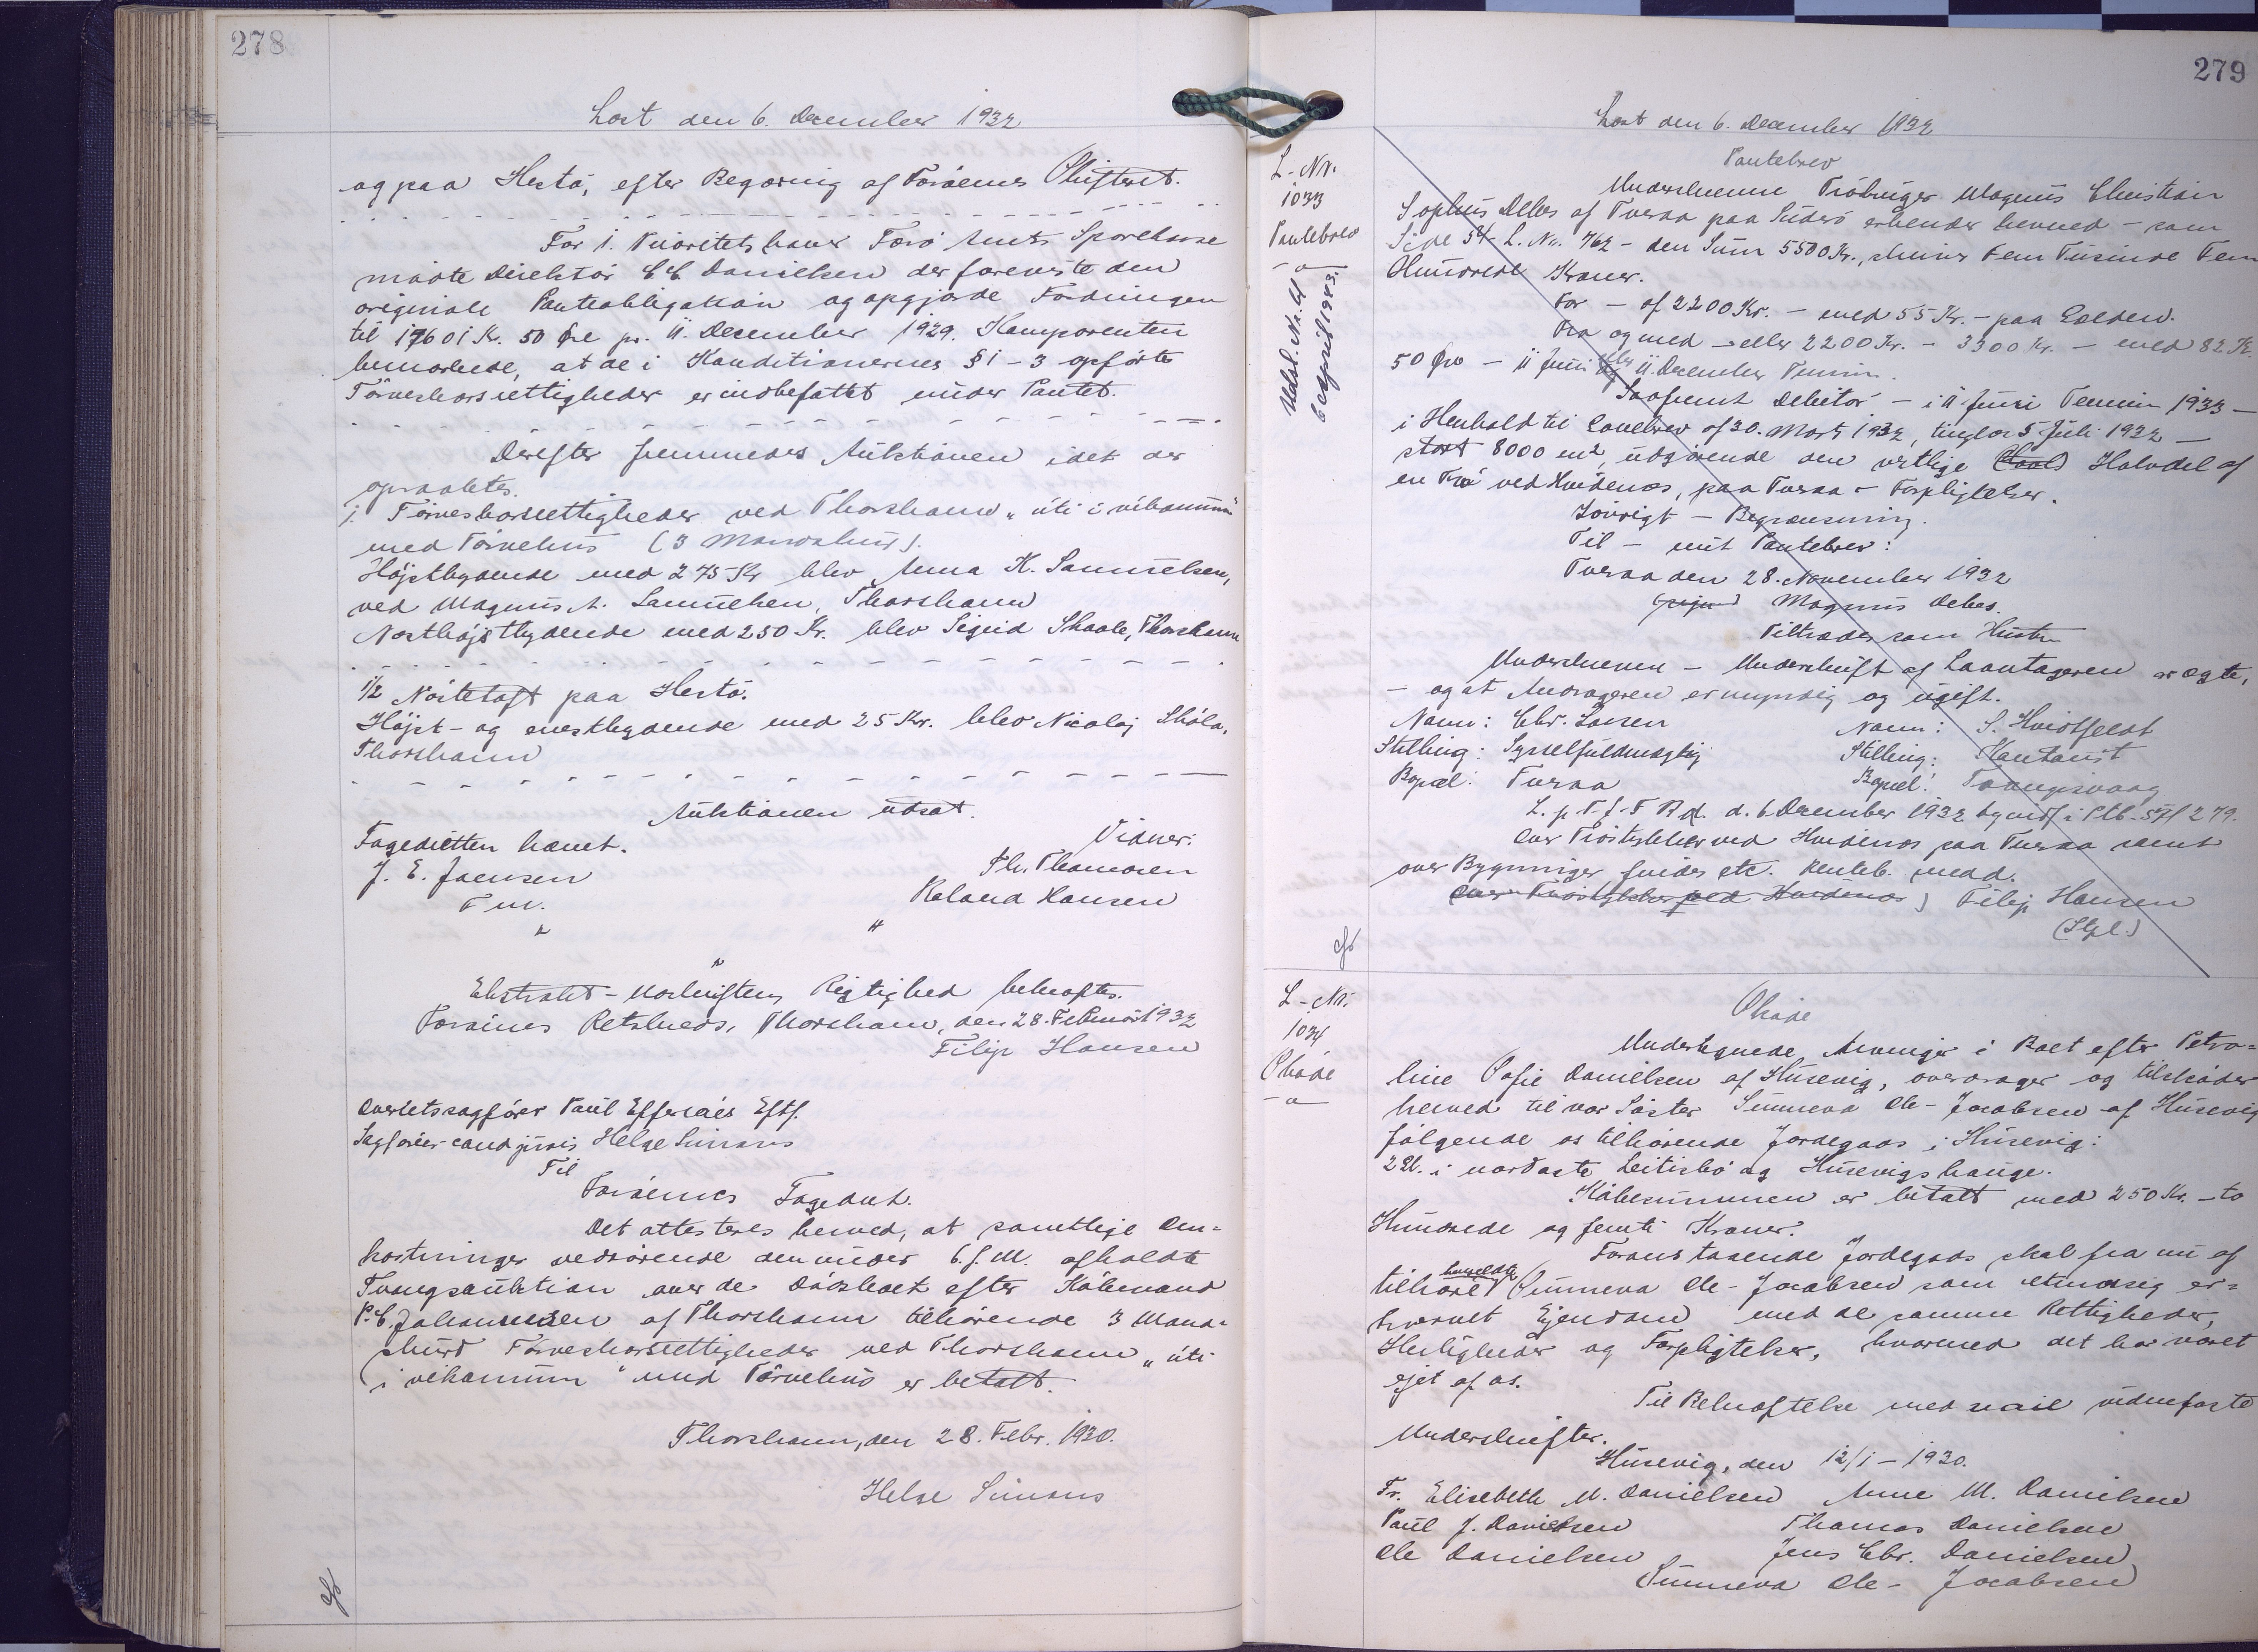 278
Læst den 6. December 1932
og paa Hestø, efter Begæring af Færøernes Skifteret.
For 1. Prioritetshaver Færø Amts Sparekasse
mødte Direktør C.C. Danielsen der foreviste den
originale Panteobligation og opgjorde Fordringen
til 17601 Kr. 50 Øre pr. 11. December 1929. Komparenten
bemærkede, at de i Konditionernes § 1 - 3 opførte
Tørveskærsrettigheder er indbefattet under Pantet.
Derefter fremmedes Auktionen idet der
opraabtes.
1. Tørveskærsrettigheder ved Thorshavn "úti i
med Tørvehus (3 Mandskurd).
Højstbydende med 275 Kr blev Anna K. Samuelsen,
ved Magnus A. Samuelsen, Thorshavn
Næsthøjstbydende med 250 Kr. blev Sigrid Skaale, Thorshavn
1/2 Nóstetoft paa Hestø.
Højst- og enestbydende med 25 Kr. blev Nicolaj Skåla,
Thorshavn
Auktionen udsat.
Fogedretten hævet.
Vidner:
J. E. Jaensen
Th. Thomasen
F m.
Roland Hansen
" "
"
Ekstrakt-Udskriftens Rigtighed bekræftes.
Færøernes Retskreds, Thorshavn, den 28. Februar 1932
Filip Hansen
Overretssagfører Paul Effersøes Eftf.
Sagfører cand juris Helge Simons
Til
Færøernes Fogedret.
Det attesteres herved, at samtlige Om=
kostninger vedrørende den under 6. f. M. afholdte
Tvangsauktion over de Dødsboet efter Købmand
P. C. Johannesen af Thorshavn tilhørende 3 Mand=
skurd Tørveskærsrettigheder ved Thorshavn "úti
i " med Tørvehus er betalt.
Thorshavn, den 28. Febr. 1930.
Helge Simons
279
Læst den 6. December 1932
L.-Nr.
1033
Pantebrev
Udsl. Nr. 41
6 April 1943.
Pantebrev
Underskrevne Magnus Christian
Sophus Debes af Tveraa paa Suderø erkender herved - som
Side 54 - L. Nr. 762 - den Sum 5500 Kr., skriver Fem Tusinde Fem
Hundrede Kroner.
For - af 2200 Kr. - med 55 Kr. - paa Gælden.
Fra og med - eller 2200 Kr. - 3300 Kr. - med 82 Kr.
50 Øre - 11 Juni eller 11. December Termin.
Saafremt Debitor - i 11 Juni Termin 1933 -
i Henhold til Lånebrev af 30. Marts 1932, tinglæst 5 Juli 1932 -
stort 8000 m2, udgørende den vestlige Halvdel af
en Trø ved Hvidenæs, paa Tveraa - Forpligtelser.
Iøvrigt - Begrænsning.
Til - mit Pantebrev:
Tveraa den 28. November 1932
Magnus Debes.
Tiltrædes som Hustru
Underskrevne - Underskrift af Laantageren er ægte,
- og at Andrageren er myndig og ugift.
Navn: Chr. Larsen
Navn: S. Hvidtfeldt
Stilling: Sysselfuldmægtig
Stilling: Kontorist
Bopæl: Tveraa
Bopæl: Trangisvaag
L. p. T. f. F R. d. 6 December 1932 og indf i Ptb. 57/279.
Over Trøstykker ved Hvidenæs paa Tveraa samt
over Bygninger findes etc. Panteb. medd.
Over Trøstykker ved Hvidenæs Filip Hansen
(Stpl.)
L.-Nr.
1034
Skøde
Skøde
Undertegnede Arvinger i Boet efter Petro=
line Sofie Danielsen af Husevig, overdrager og tilskøder
herved til vor Søster Sunneva Ole-Jacobsen af Husevig
følgende os tilhørende Jordegods i Husevig:
2 Gl. i nordaste Leitisbø og Husevigshauge.
Købesummen er betalt med 250 Kr. - to
Hundrede og femti Kroner.
Foranstaaende Jordegods skal fra nu af
tilhøre bemeldte Sunneva Ole-Jacobsen som retmæssig er=
hvervet Ejendom med de samme Rettigheder,
Herligheder og Forpligtelser, hvormed det har været
ejet af os.
Til Bekræftelse med vore vidnefaste
Underskrifter.
Husevig, den 12/1 - 1930.
Fr. Elisebeth M. Danielsen Anne M. Danielsen
Paul J. Danielsen Thomas Danielsen
Ole Danielsen Jens Chr. Danielsen
Sunneva Ole-Jacobsen